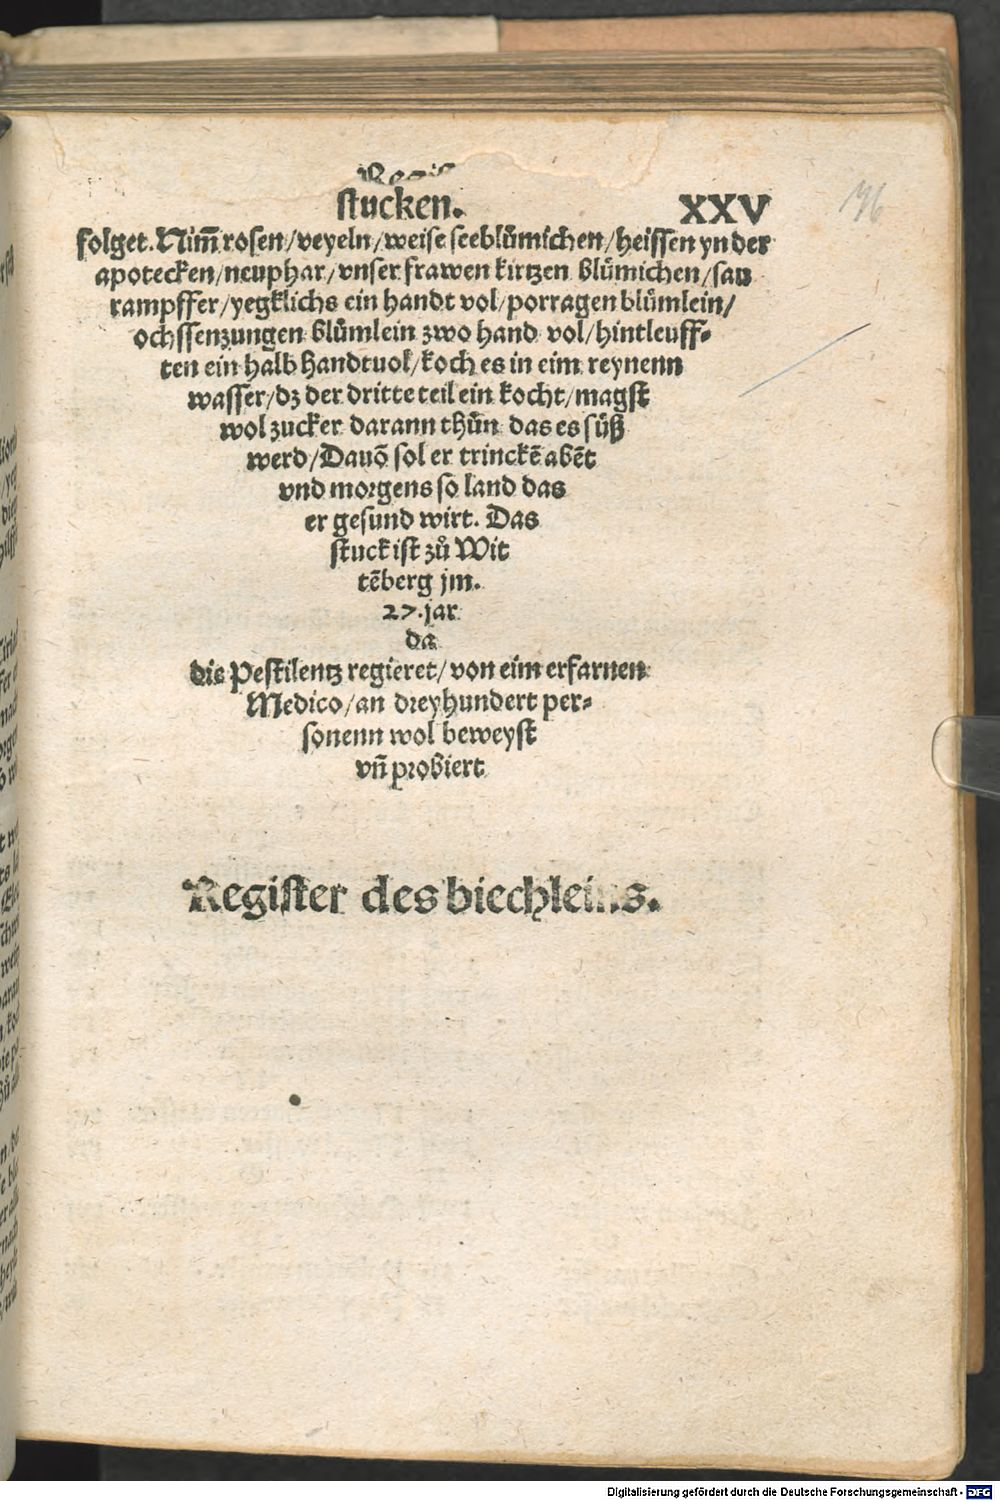 stucken. XXV
folget. Nim̄ rosen/veyeln/weise seeblůmichen/heissen yn der
apotecken/neuphar/vnser frawen kirtzen blůmichen/sau
rampffer/yegklichs ein handt vol/porragen blůmlein/
ochssenzungen blůmlein zwo hand vol/hintleuff-
ten ein halb handtuol/koch es in eim reynenn
wasser/dz der dritte teil ein kocht/magst
wol zucker darann thůn das es sůß
werd/Dauō sol er trinckē abēt
vnd morgens so land das
er gesund wirt. Das
stuck ist zů Wit
tēberg jm.
27. jar
da
die Pestilentz regieret/von eim erfarnen
Medico/an dreyhundert per-
sonenn wol beweyst
vn̄ probiert
Register des biechleins.
Digitalisierung gefördert durch die Deutsche Forschungsgemeinschaft - DFG